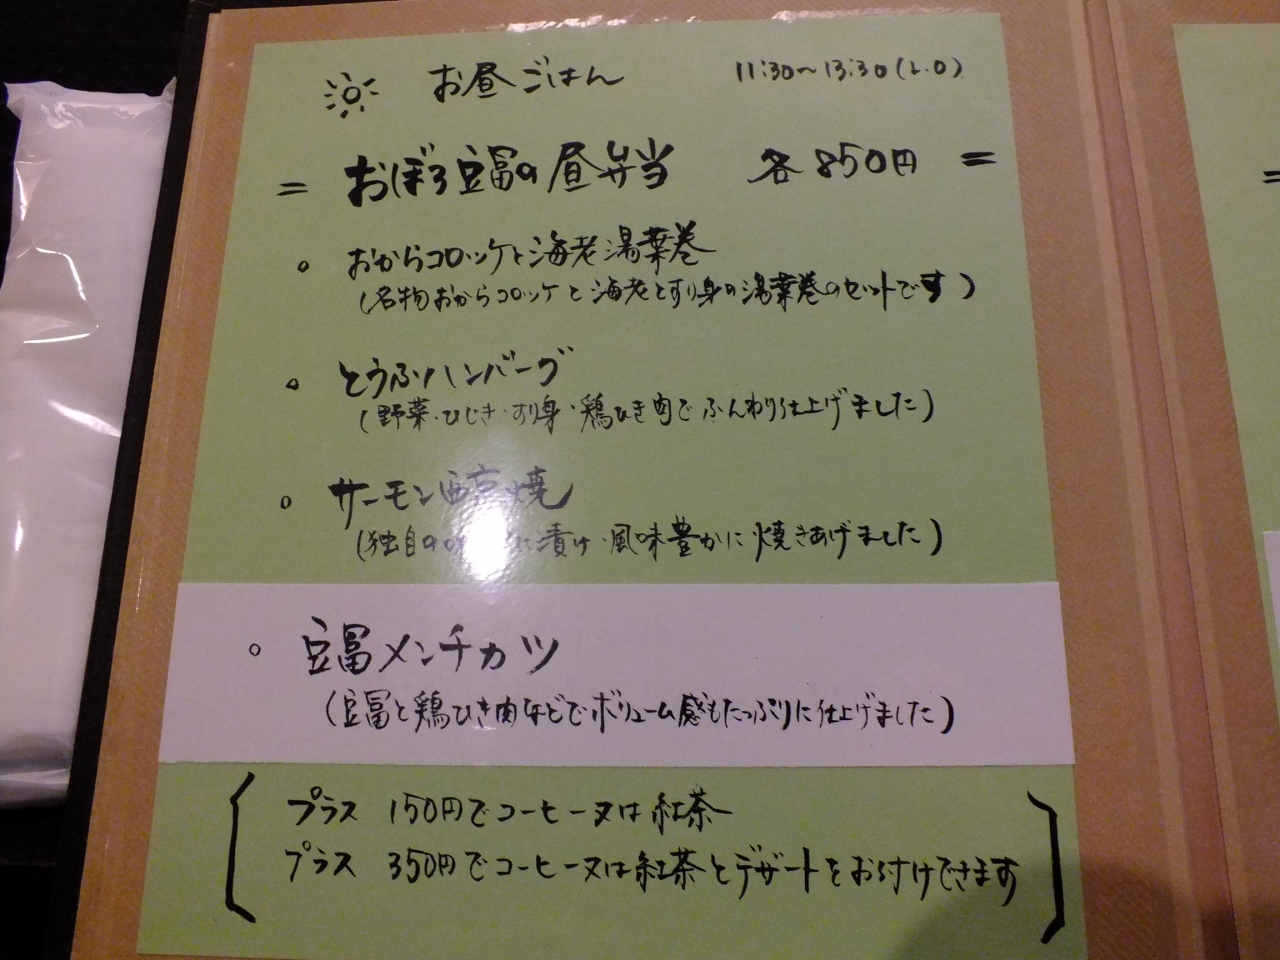 お昼ごはん 11:30〜13:30(L.O)
= おぼろ豆冨の昼弁当 各850円 =
。おからコロッケと海老湯葉巻
(名物おからコロッケと海老とすり身の湯葉巻のセットです)
。とうふハンバーグ
(野菜・ひじき・すり身・鶏ひき肉でふんわり仕上げました)
。サーモン西京焼
(独自の に漬け・風味豊かに焼きあげました)
。豆冨メンチカツ
(豆冨と鶏ひき肉などでボリューム感もたっぷりに仕上げました)
プラス 150円でコーヒー又は紅茶
プラス 350円でコーヒー又は紅茶とデザートをお付けできます
=